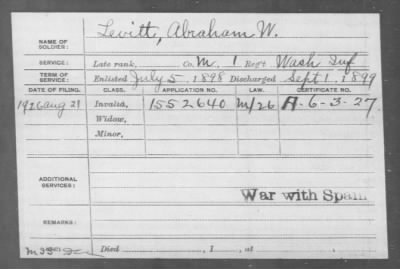 NAME OF SOLDIER: Levitt, Abraham W.
SERVICE: Late rank, Co. M, 1 Reg't Wash Inf
TERM OF SERVICE: Enlisted July 5, 1898 Discharged Sept 1, 1899
DATE OF FILING. CLASS. APPLICATION NO. LAW. CERTIFICATE NO.
1926 Aug 21 Invalid, 1552640 M/26 A-6-3-27.
Widow,
Minor,
ADDITIONAL SERVICES:
War with Spain
REMARKS:
Died , 1 , at